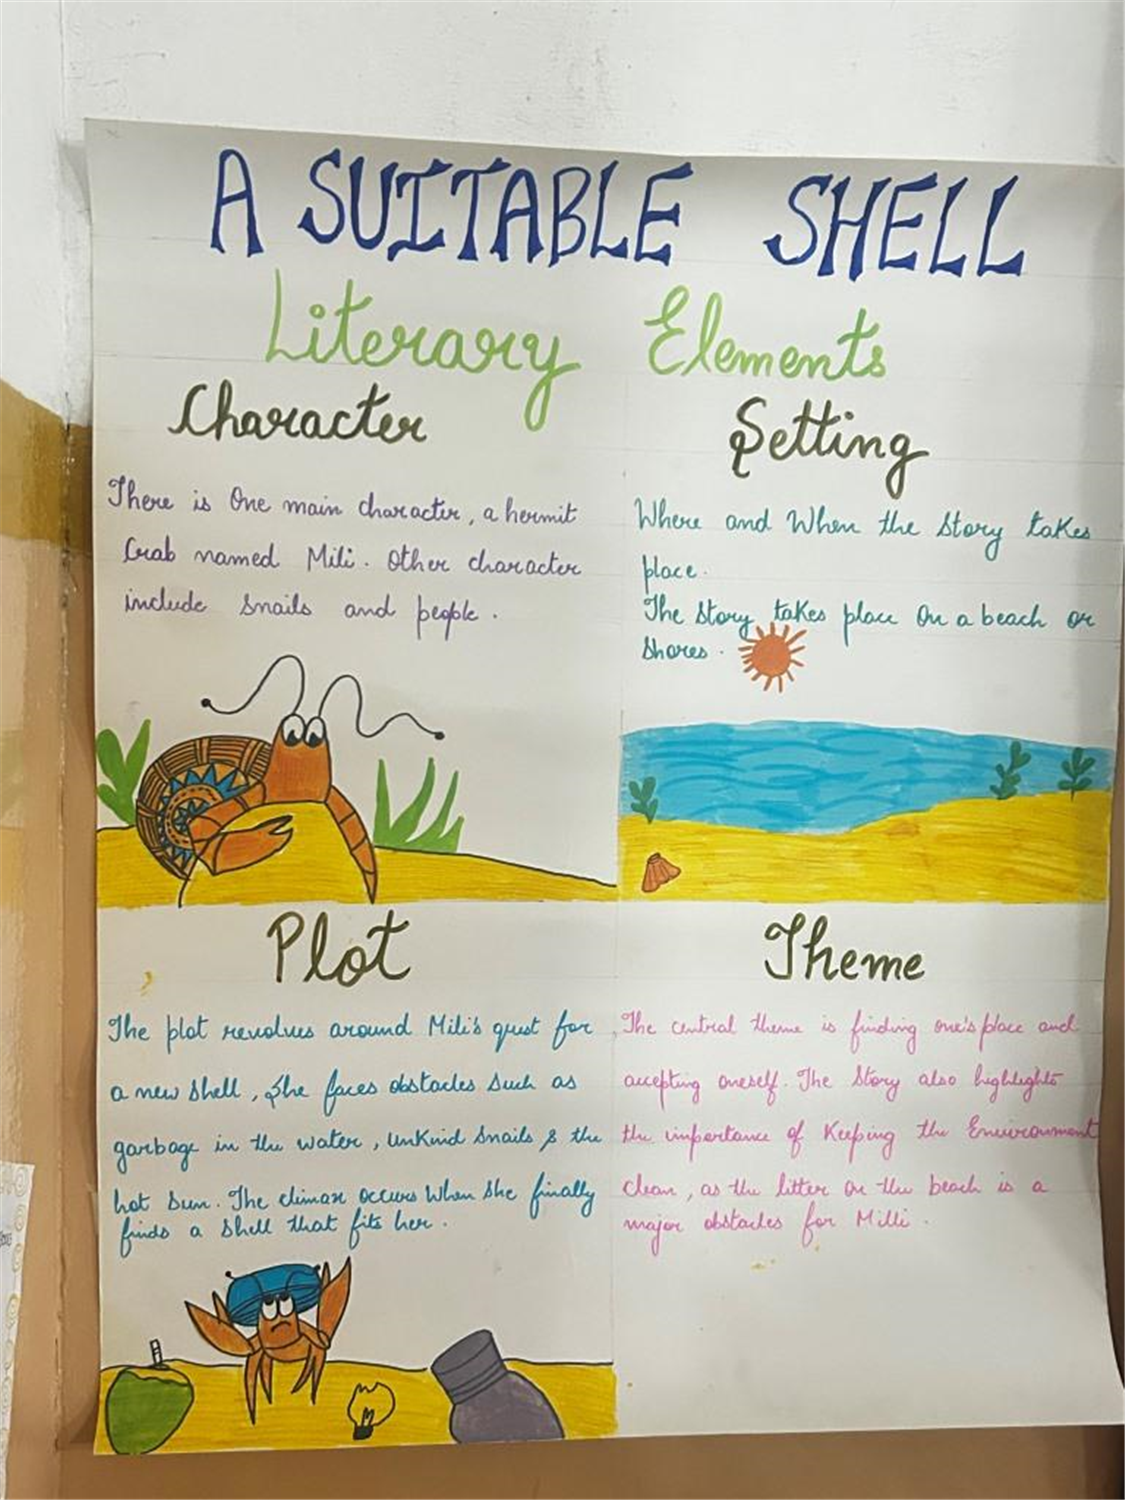 A SUITABLE SHELL
Literary Elements
Character
There is One main character, a hermit
Crab named Mili. Other character
include Snails and people.
Setting
Where and When the Story takes
place.
The Story takes place On a beach or
Shores.
Plot
The plot revolves around Mili's quest for
a new Shell, She faces obstacles Such as
garbage in the water, UnKind Snails & the
hot Sun. The climax occurs When She finally
finds a Shell that fits her.
Theme
The central theme is finding one's place and
accepting oneself. The Story also highlights
the importance of Keeping the Environment
clean, as the litter on the beach is a
major obstacles for Milli.